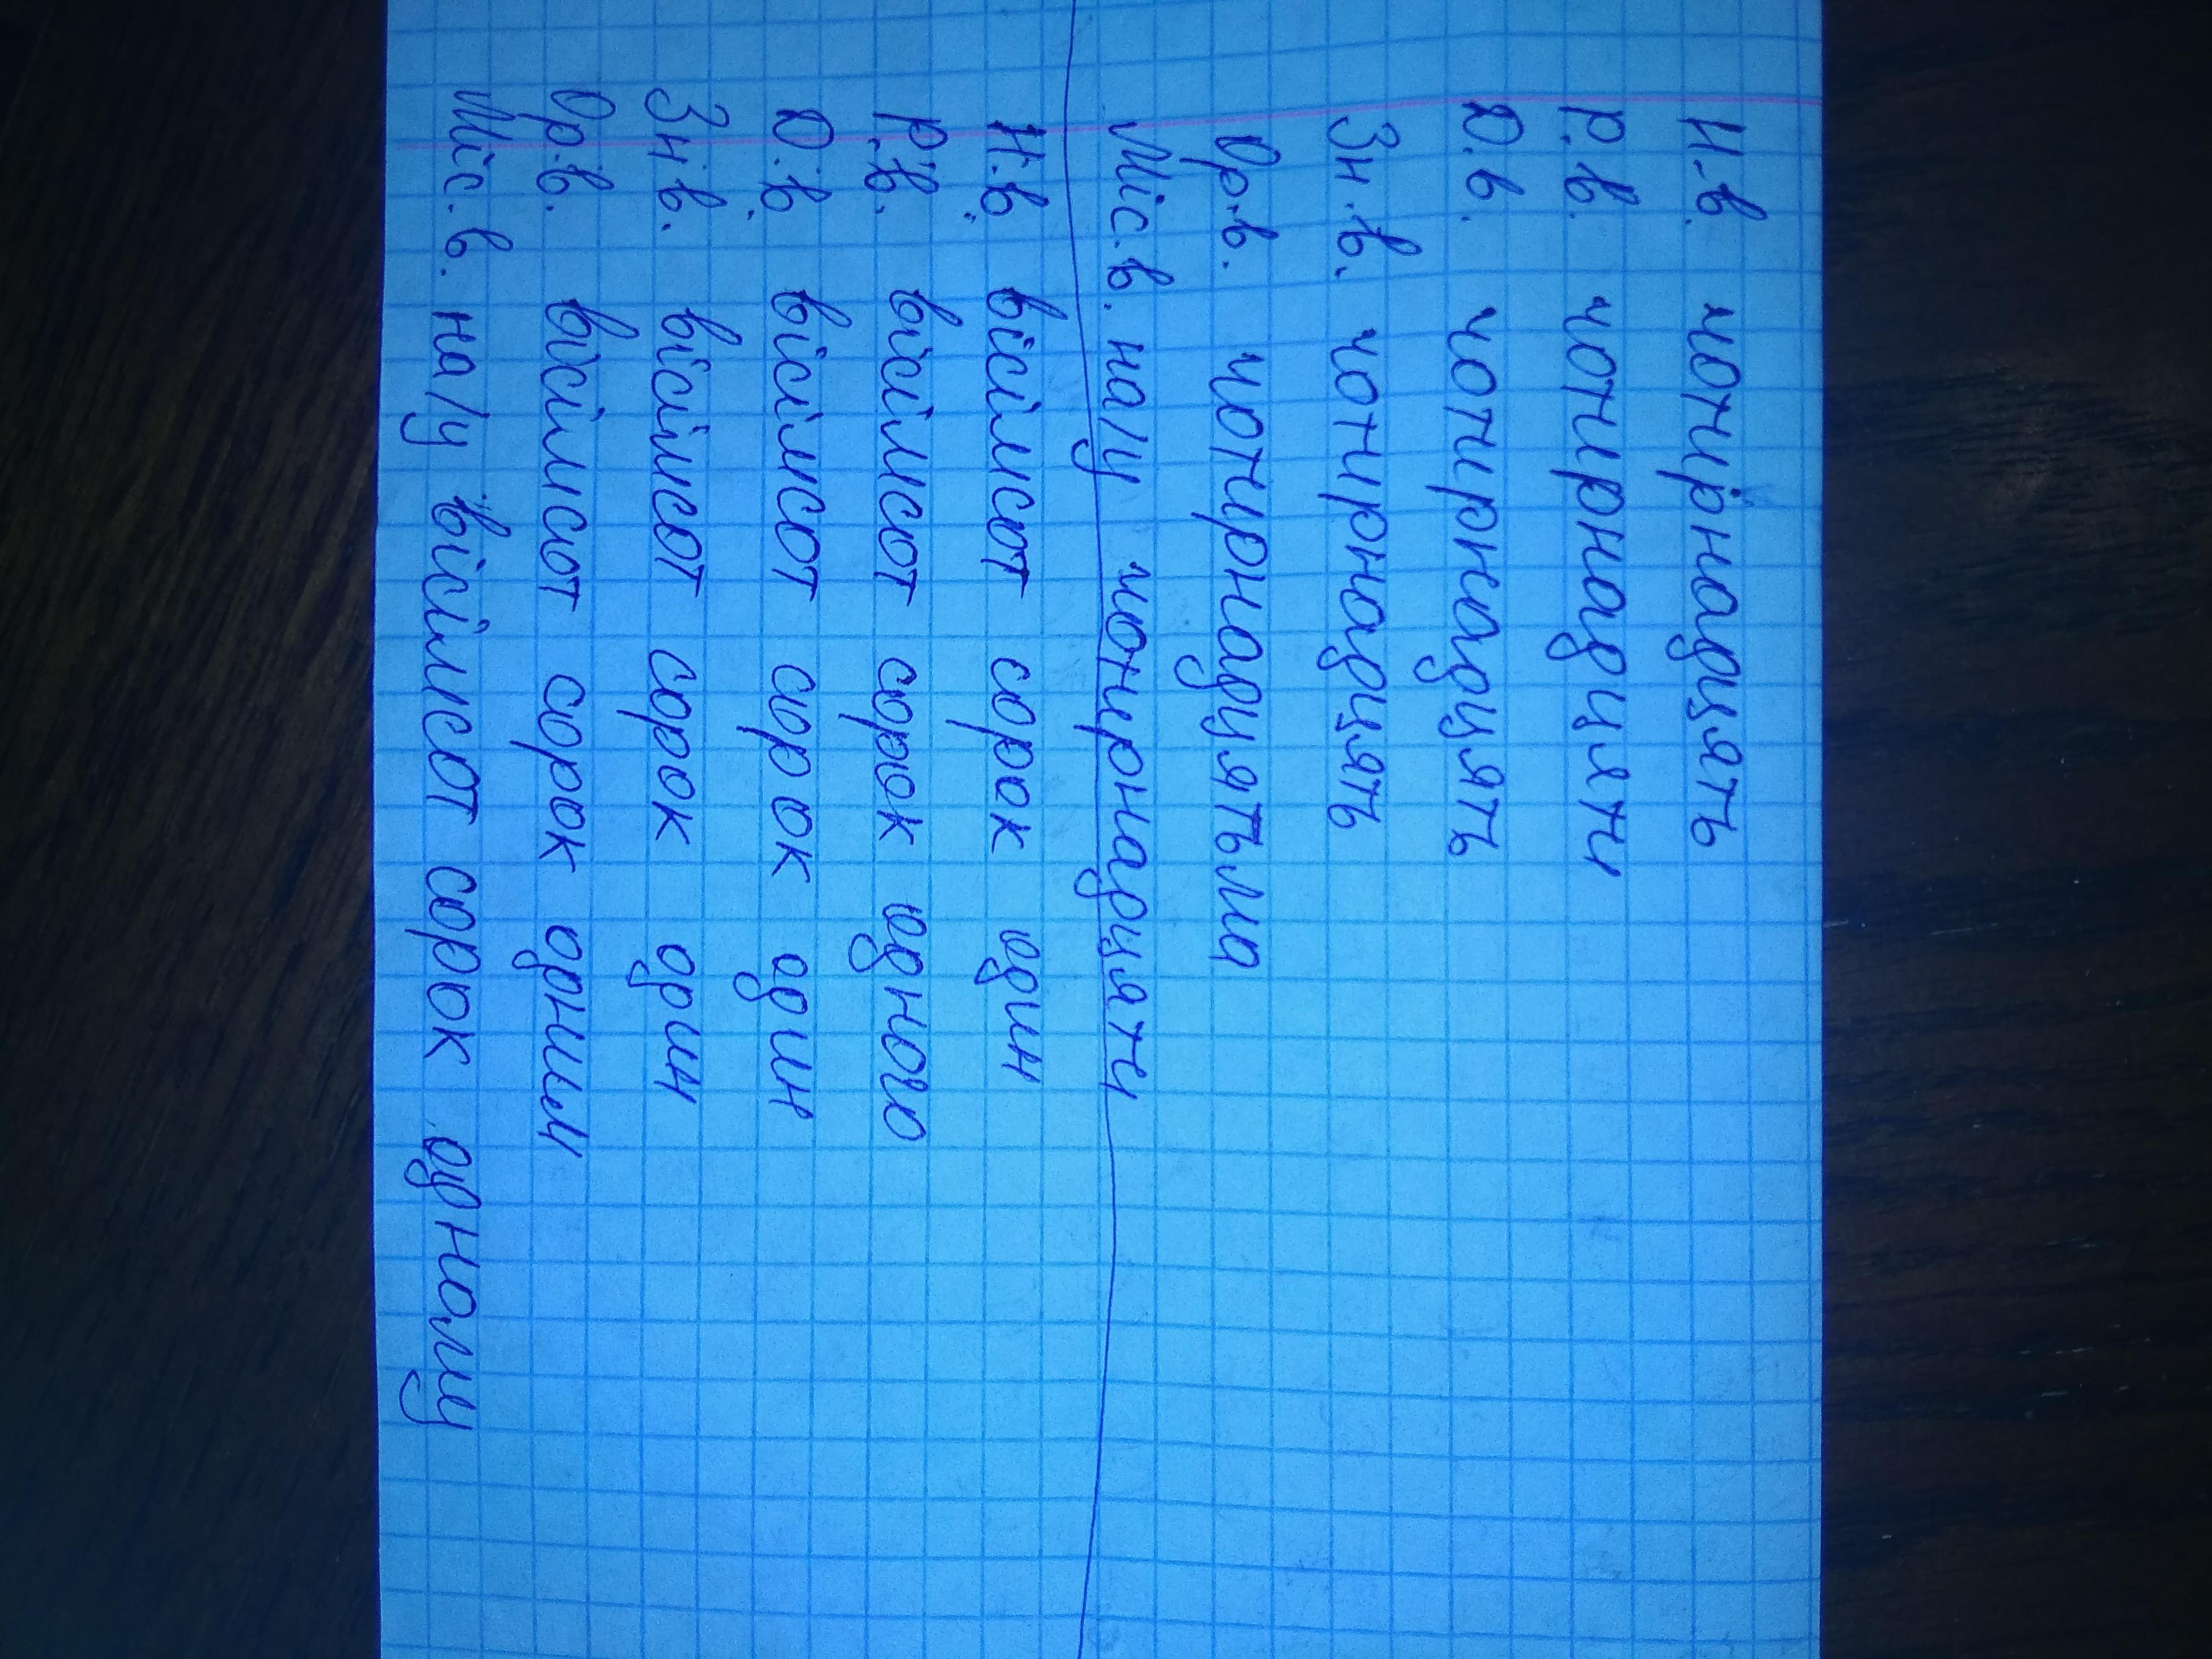 Н.в. чотирнадцять
Р.в. чотирнадцяти
Д.в. чотирнадцять
Зн.в. чотирнадцять
Ор.в. чотирнадцятьма
Міс.в. на/у чотирнадцяти
Н.в. вісімсот сорок один
Р.в. вісімсот сорок одного
Д.в. вісімсот сорок один
Зн.в. вісімсот сорок один
Ор.в. вісімсот сорок одним
Міс.в. на/у вісімсот сорок одному